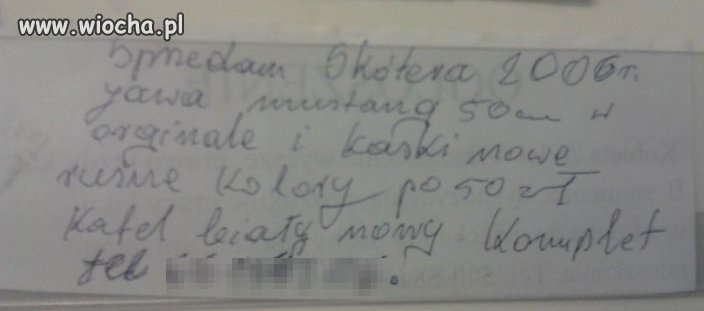 www.wiocha.pl
Sprzedam Skótera 2006r.
yawa mustang 50cm w
orginale i kaski nowe
ruśne kolory po 50 zł
Kafel biały nowy komplet
tel